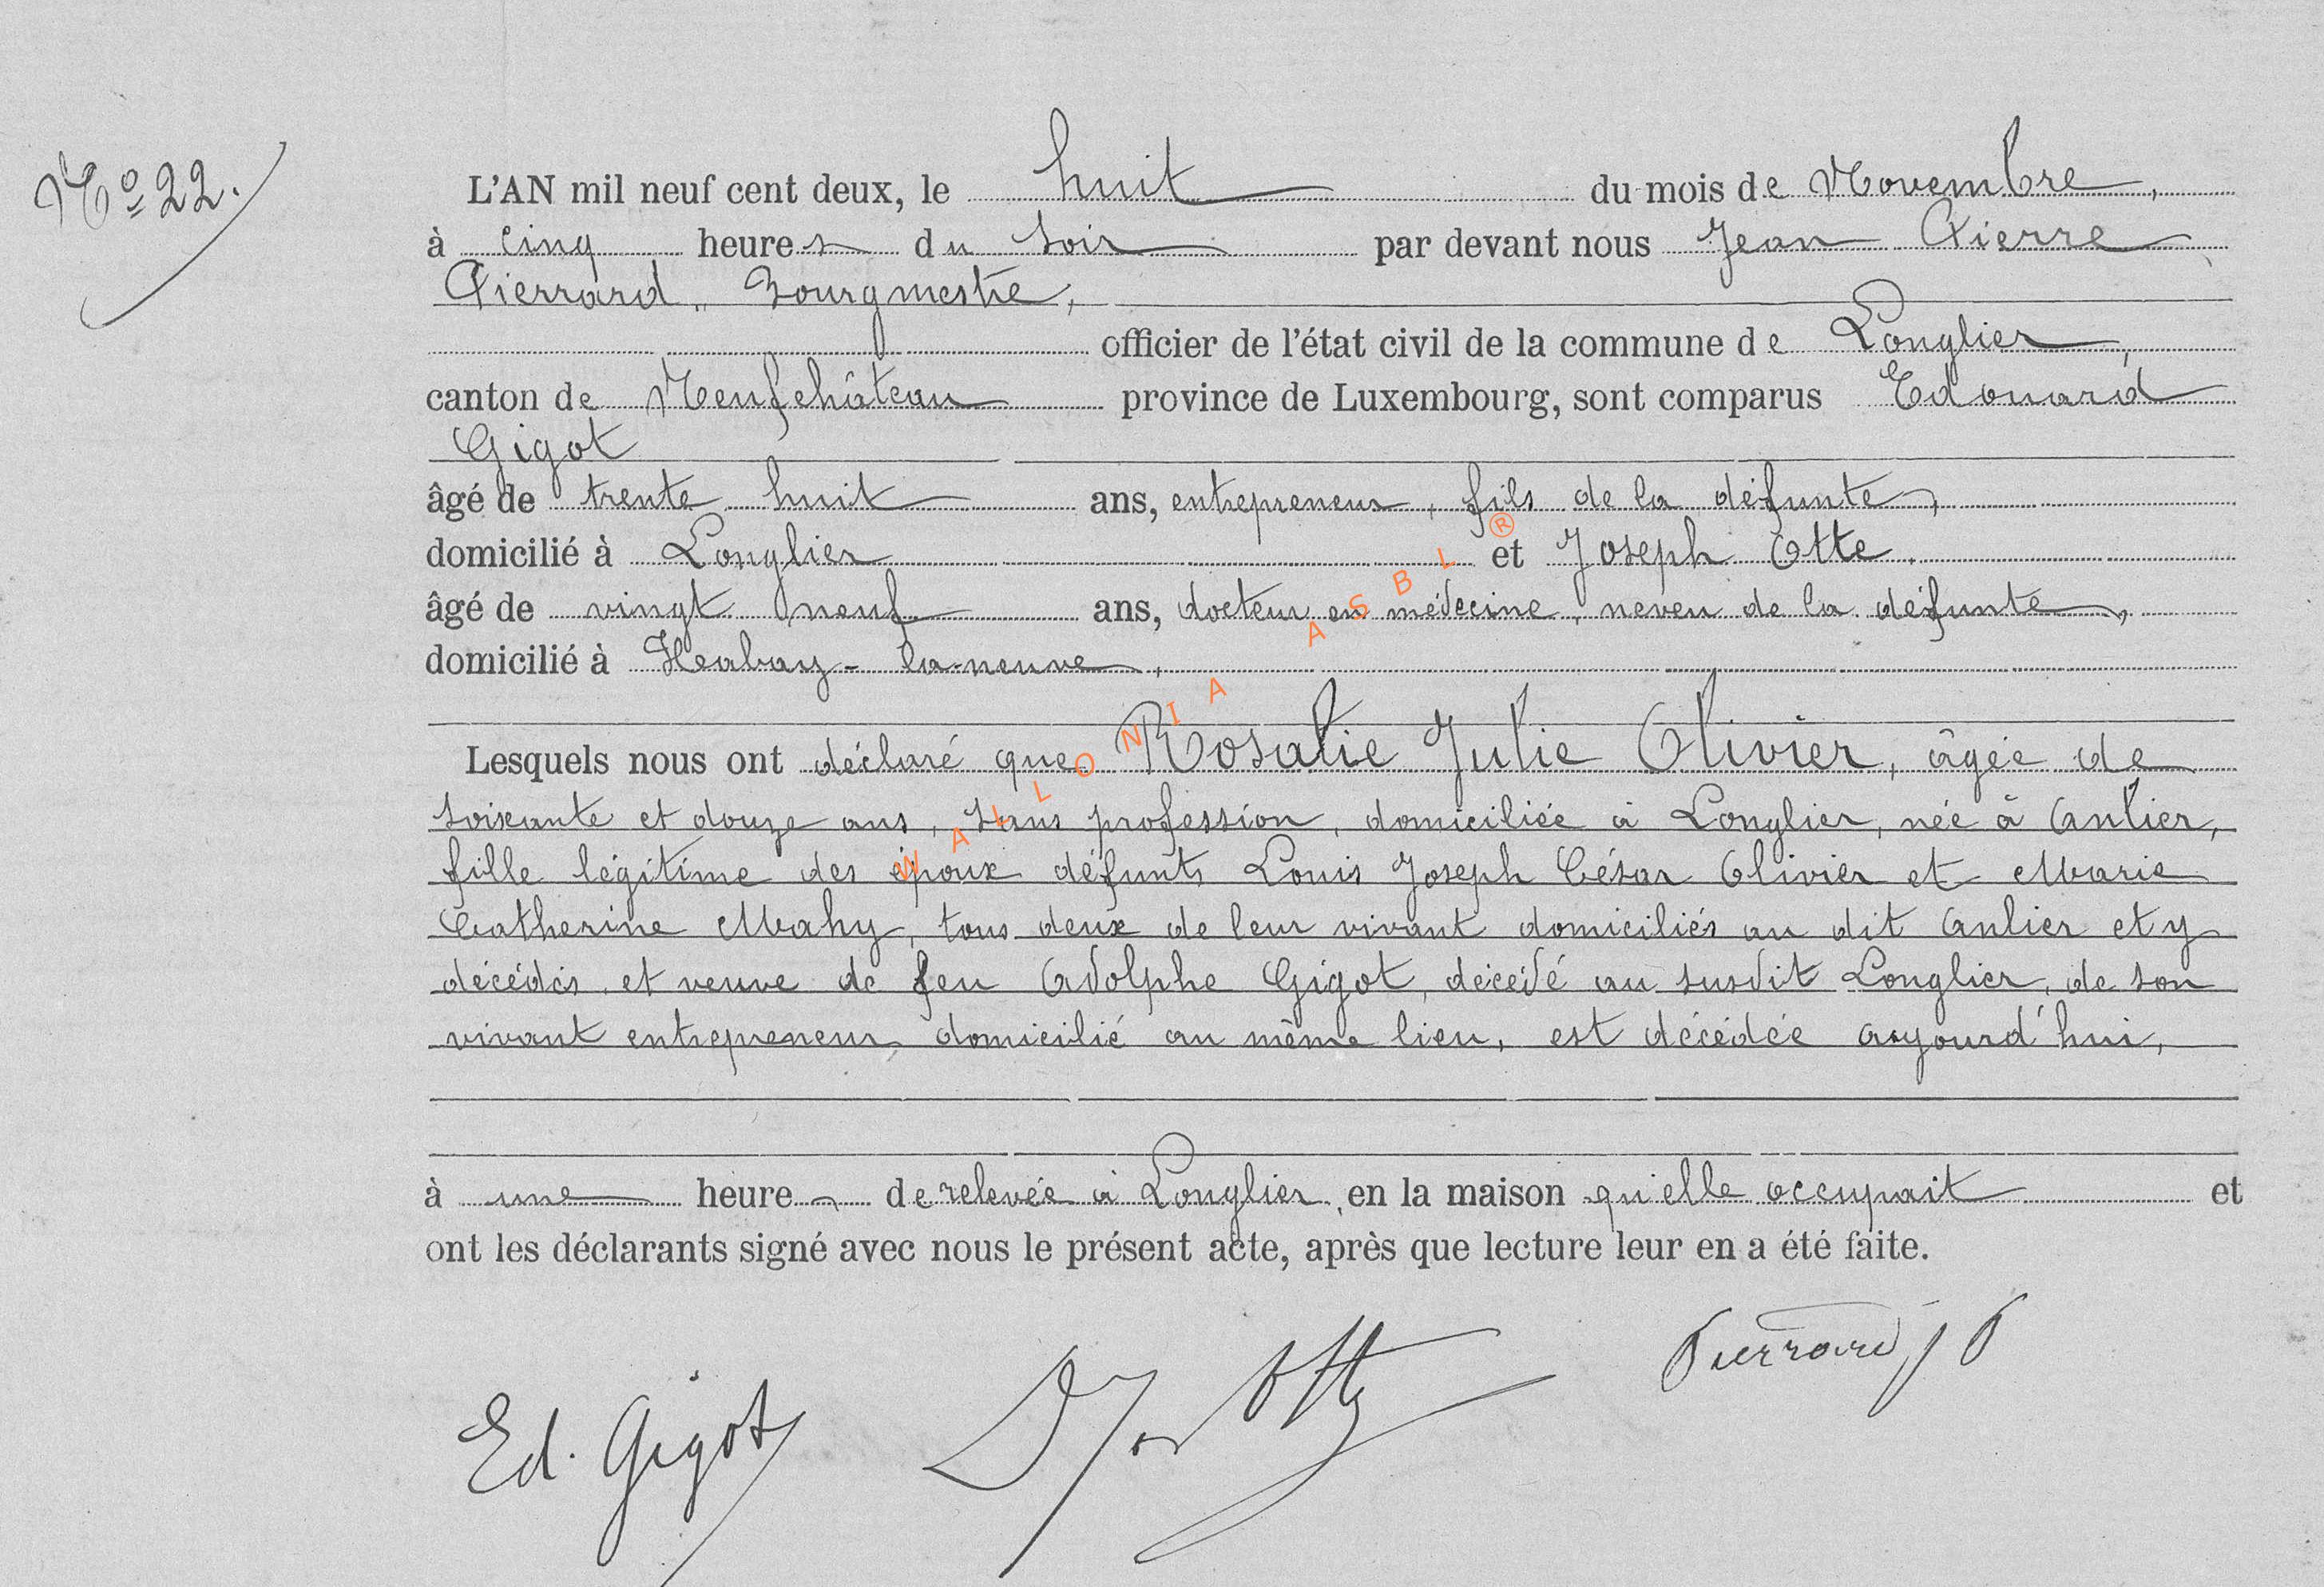 Nº 22.
L'AN mil neuf cent deux, le huit du mois de Novembre,
à cinq heures du soir par devant nous Jean Pierre
Pierrard, Bourgmestre,
officier de l'état civil de la commune de Longlier,
canton de Neufchâteau province de Luxembourg, sont comparus Edouard
Gigot
âgé de trente huit ans, entrepreneur, fils de la défunte,
domicilié à Longlier et Joseph Otte.
âgé de vingt neuf ans, docteur en médecine, neveu de la défunte,
domicilié à Habay-la-neuve,
Lesquels nous ont déclaré que Rosalie Julie Olivier, âgée de
soixante et douze ans, sans profession, domiciliée à Longlier, née à Anlier,
fille légitime des époux défunts Louis Joseph César Olivier et Marie
Catherine Mahy, tous deux de leur vivant domiciliés au dit Anlier et y
décédés, et veuve de feu Adolphe Gigot, décédé au susdit Longlier, de son
vivant entrepreneur domicilié au même lieu, est décédée aujourd'hui,
à une heure de relevée à Longlier, en la maison qu'elle occupait et
ont les déclarants signé avec nous le présent acte, après que lecture leur en a été faite.
Ed. Gigot Otte Pierrard J P
WALLONIA ASBL ®